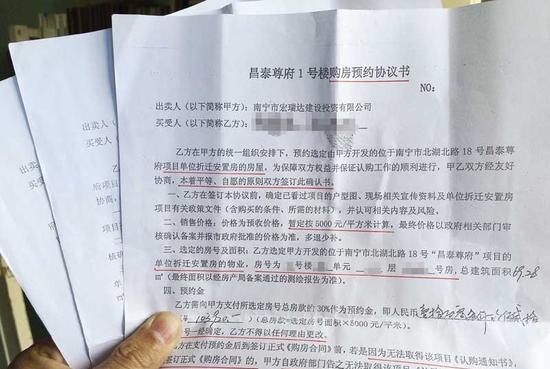 昌泰尊府1号楼购房预约协议书
NO:
出卖人（以下简称甲方）：南宁市宏瑞达建设投资有限公司
买受人（以下简称乙方）：
乙方在甲方的统一组织安排下，预约选定由甲方开发的位于南宁市北湖北路18号昌泰尊
府项目单位拆迁安置房的房屋，为保障双方权益并保证认购工作的顺利进行，甲乙双方经友好
协商，本着平等、自愿的原则双方签订此确认书。
一、乙方在签订本协议前，确定已看过项目的户型图、现场相关宣传资料及单位拆迁安置房
项目有关政策文件（含购买的条件、所需的材料），并认可相关内容及风险。
二、销售价格：价格为预收价格，暂定按5000元/平方米计算，最终价格以政府相关部门审
核确认备案并报市政府批准的价格为准，多退少补。
三、选定的房号及面积：乙方选定甲方开发的位于南宁市北湖北路18号“昌泰尊府”项目的
单位拆迁安置房的物业，房号为 号楼 单元 层 号房，总建筑面积69.28
㎡（最终面积以经房产局备案通过的测绘报告为准）。
四、预约金
乙方需向甲方支付所选定房号总房款的30%作为预约金，即人民币
（总房款=选定房号面积×5000元/平米）。
号一经确定，乙方不得以任何理由更改。
在支付预约金后到签订正式《购房合同》前，若是因为无法取得该项目《认购通知书》，
签订正式《购房合同》的，甲方自政府部门告之无法取得该项目